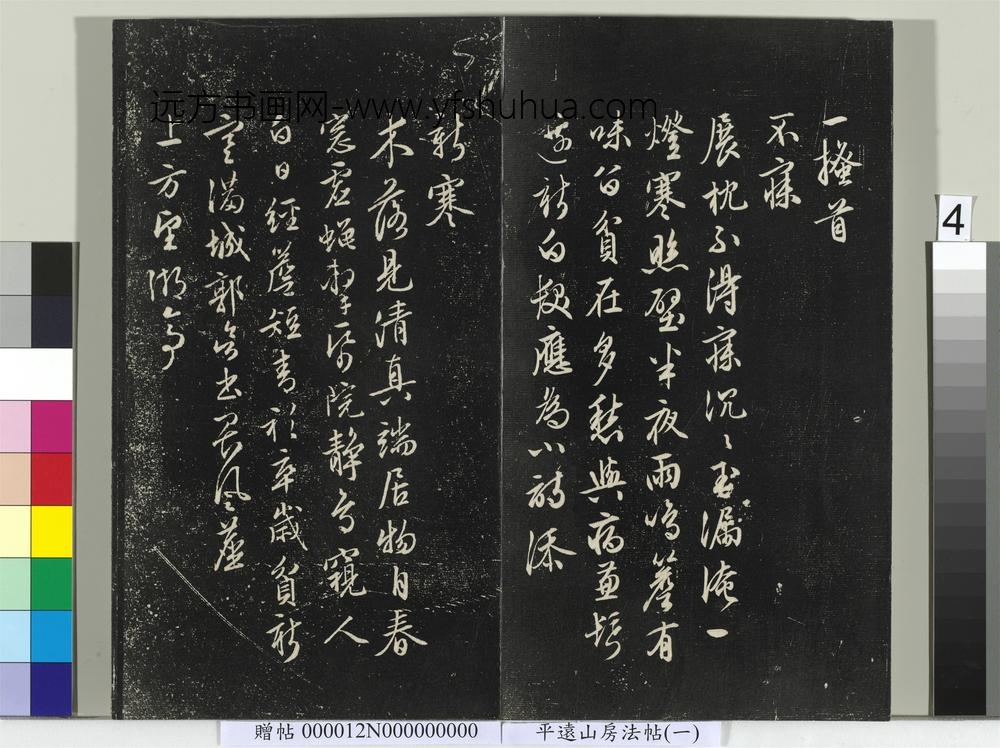 一搔首
不寐
展枕不得寐沉沉玉漏淹一
燈寒照壁半夜雨鳴簷有
味自貧在多愁與病兼鬢
邊新白髮應為小詩添
新寒
木落見清真端居物自春
窓虛蠅聚紙院靜鳥窺人
白日經簷短青衫卒歲貧新
寒滿城郭無出畏風塵
上方望湖亭
远方书画网-www.yfshuhua.com
4
贈帖 000012N000000000
平遠山房法帖(一)